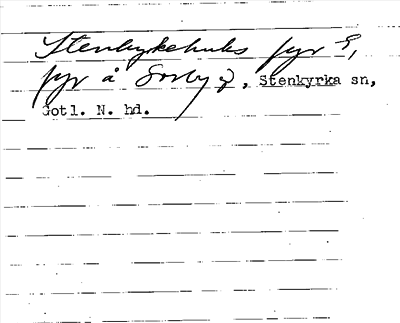 Stenkyrkehuks fyr,
fyr å Sorby, Stenkyrka sn,
Gotl. N. hd.